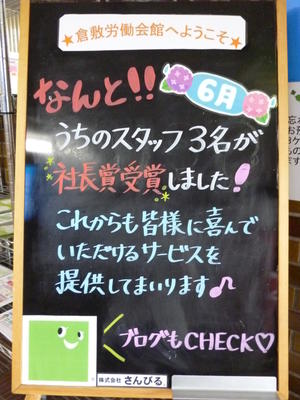 ★倉敷労働会館へようこそ★
なんと!!
6月
うちのスタッフ3名が
社長賞受賞しました!
これからも皆様に喜んで
いただけるサービスを
提供してまいります♪
ブログもCHECK♡
株式会社 さんびる